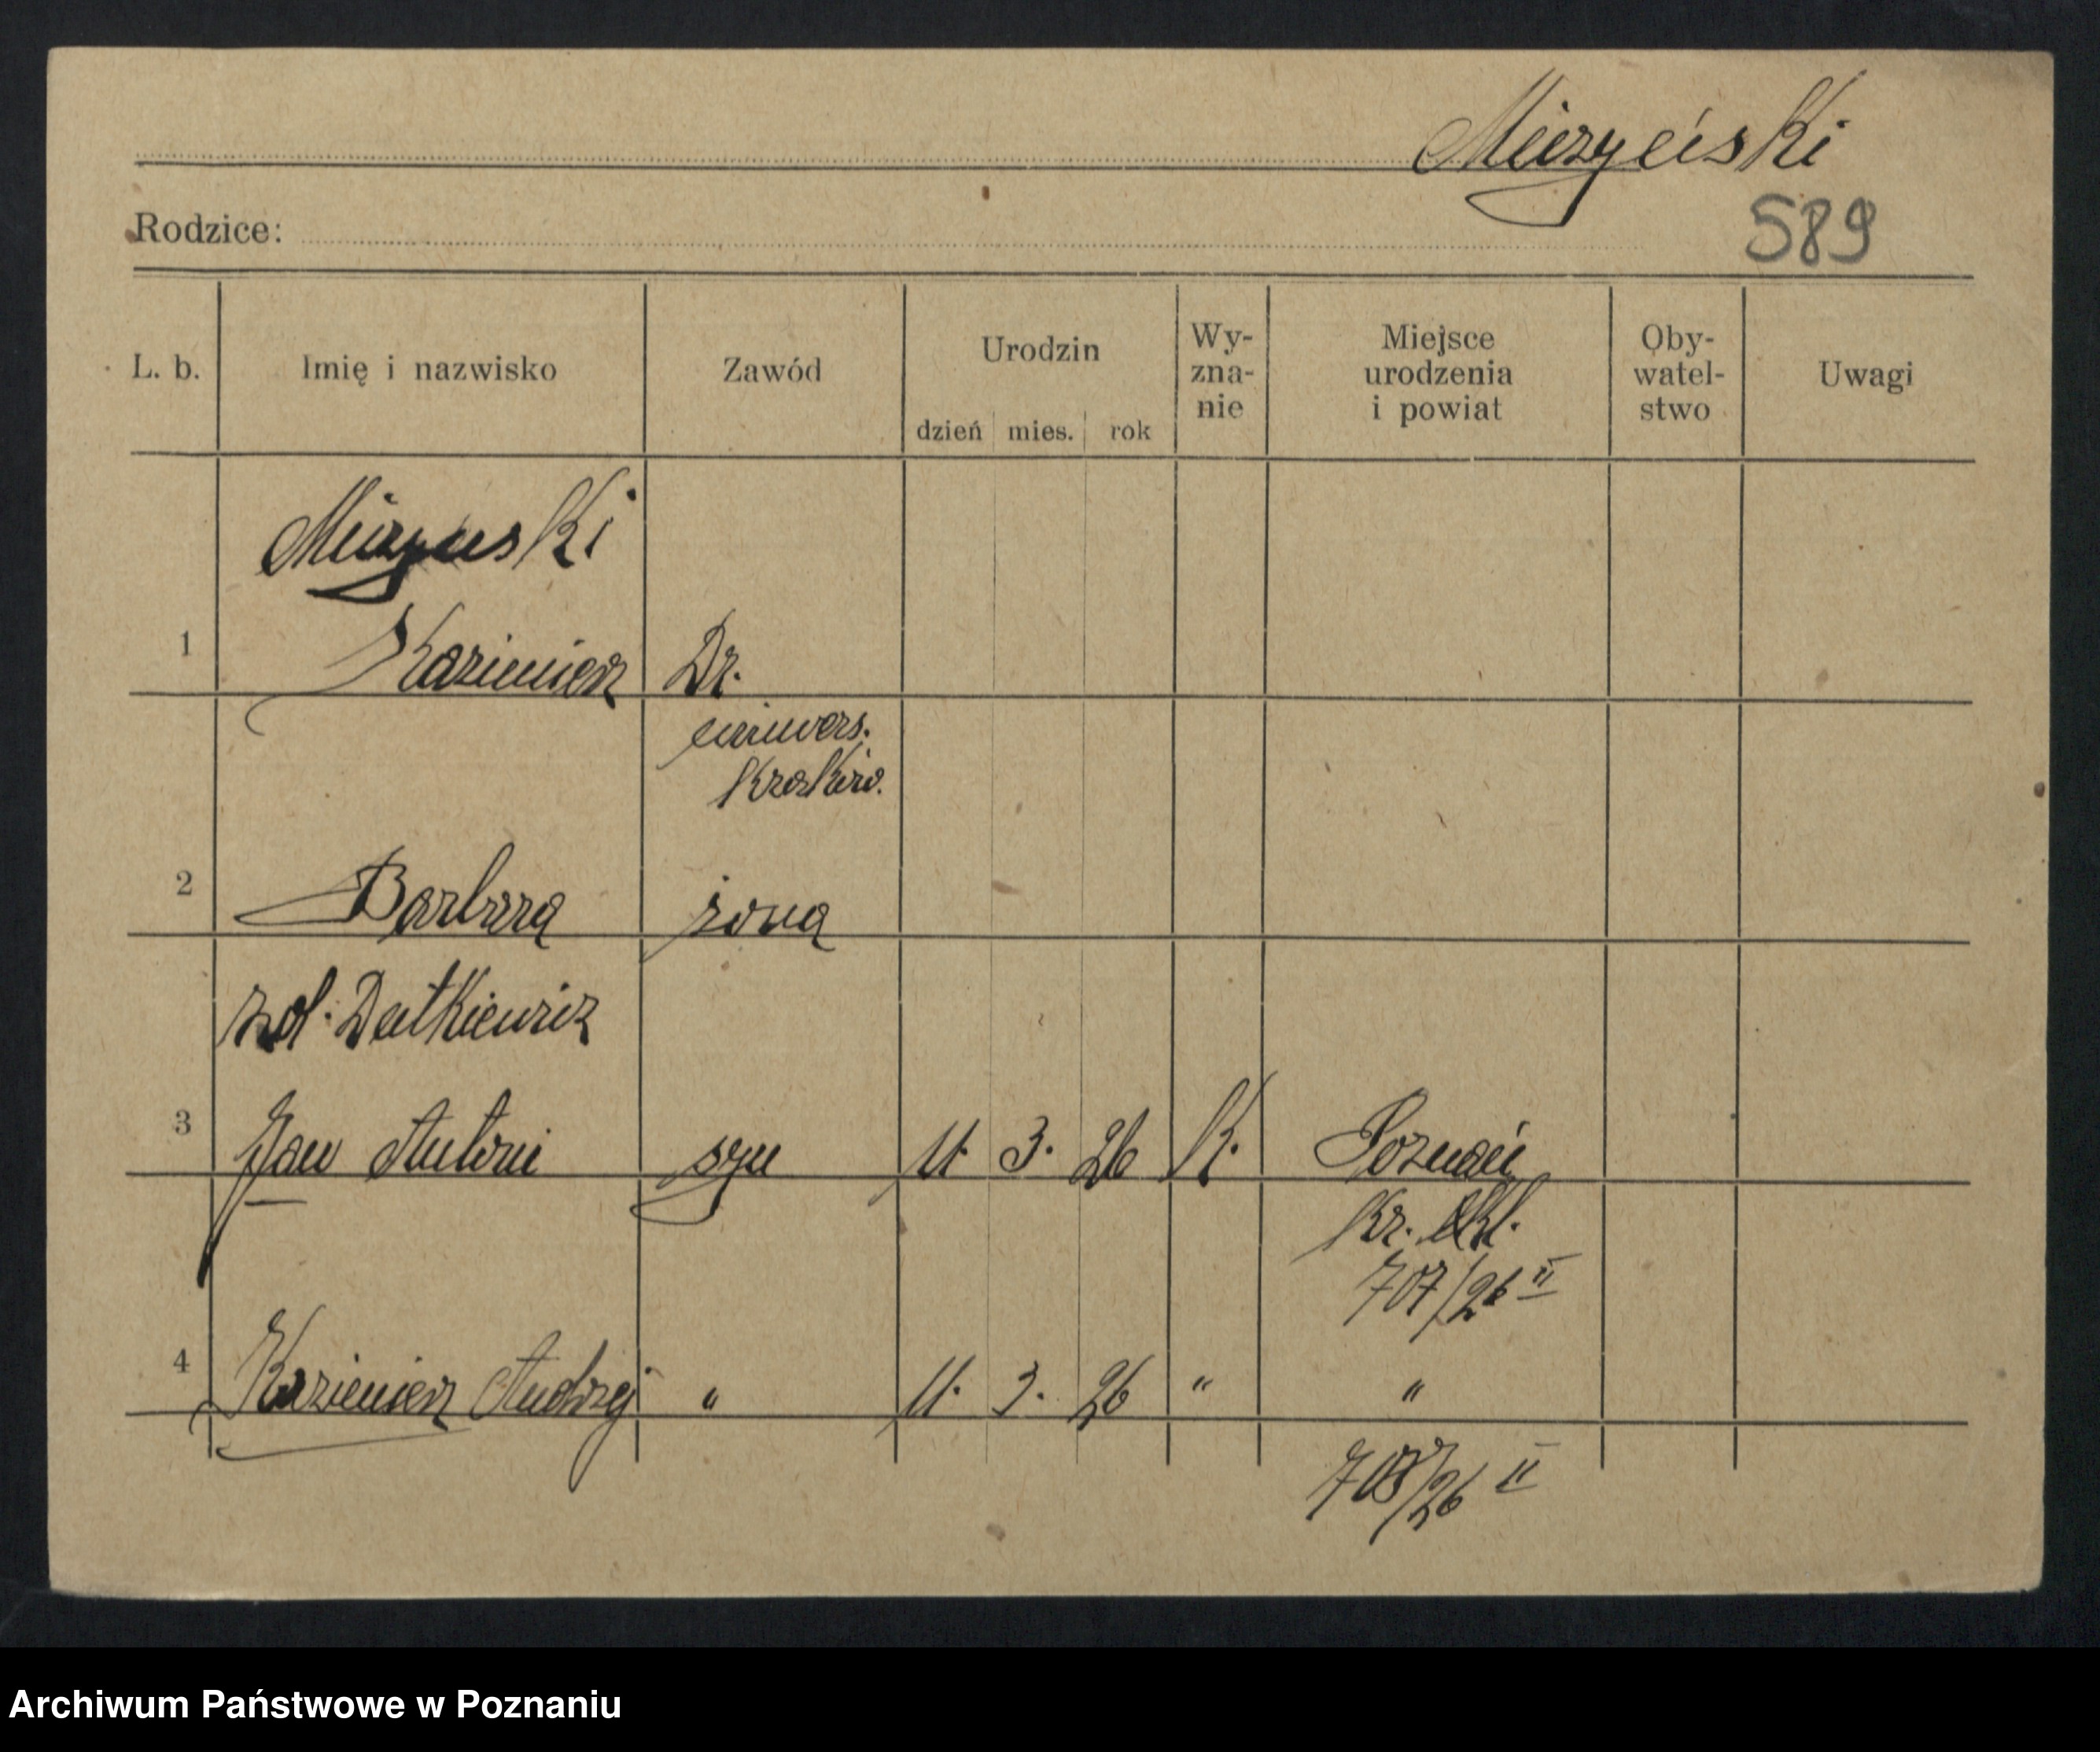 Mieżyński
589
Rodzice:
L. b. Imię i nazwisko Zawód Urodzin dzień mies. rok Wy-zna-nie Miejsce urodzenia i powiat Oby-watel-stwo Uwagi
1 Kazimierz Dr.
uniwers.
Krakow.
2 Barbara żona
Dutkiewicz
3 Jan Antoni syn 11. 3. 26 K. Poznań
Kr.
707/26 II
4 Kazimierz Andrzej " 11. 3. 26 " "
708/26 II
Archiwum Państwowe w Poznaniu